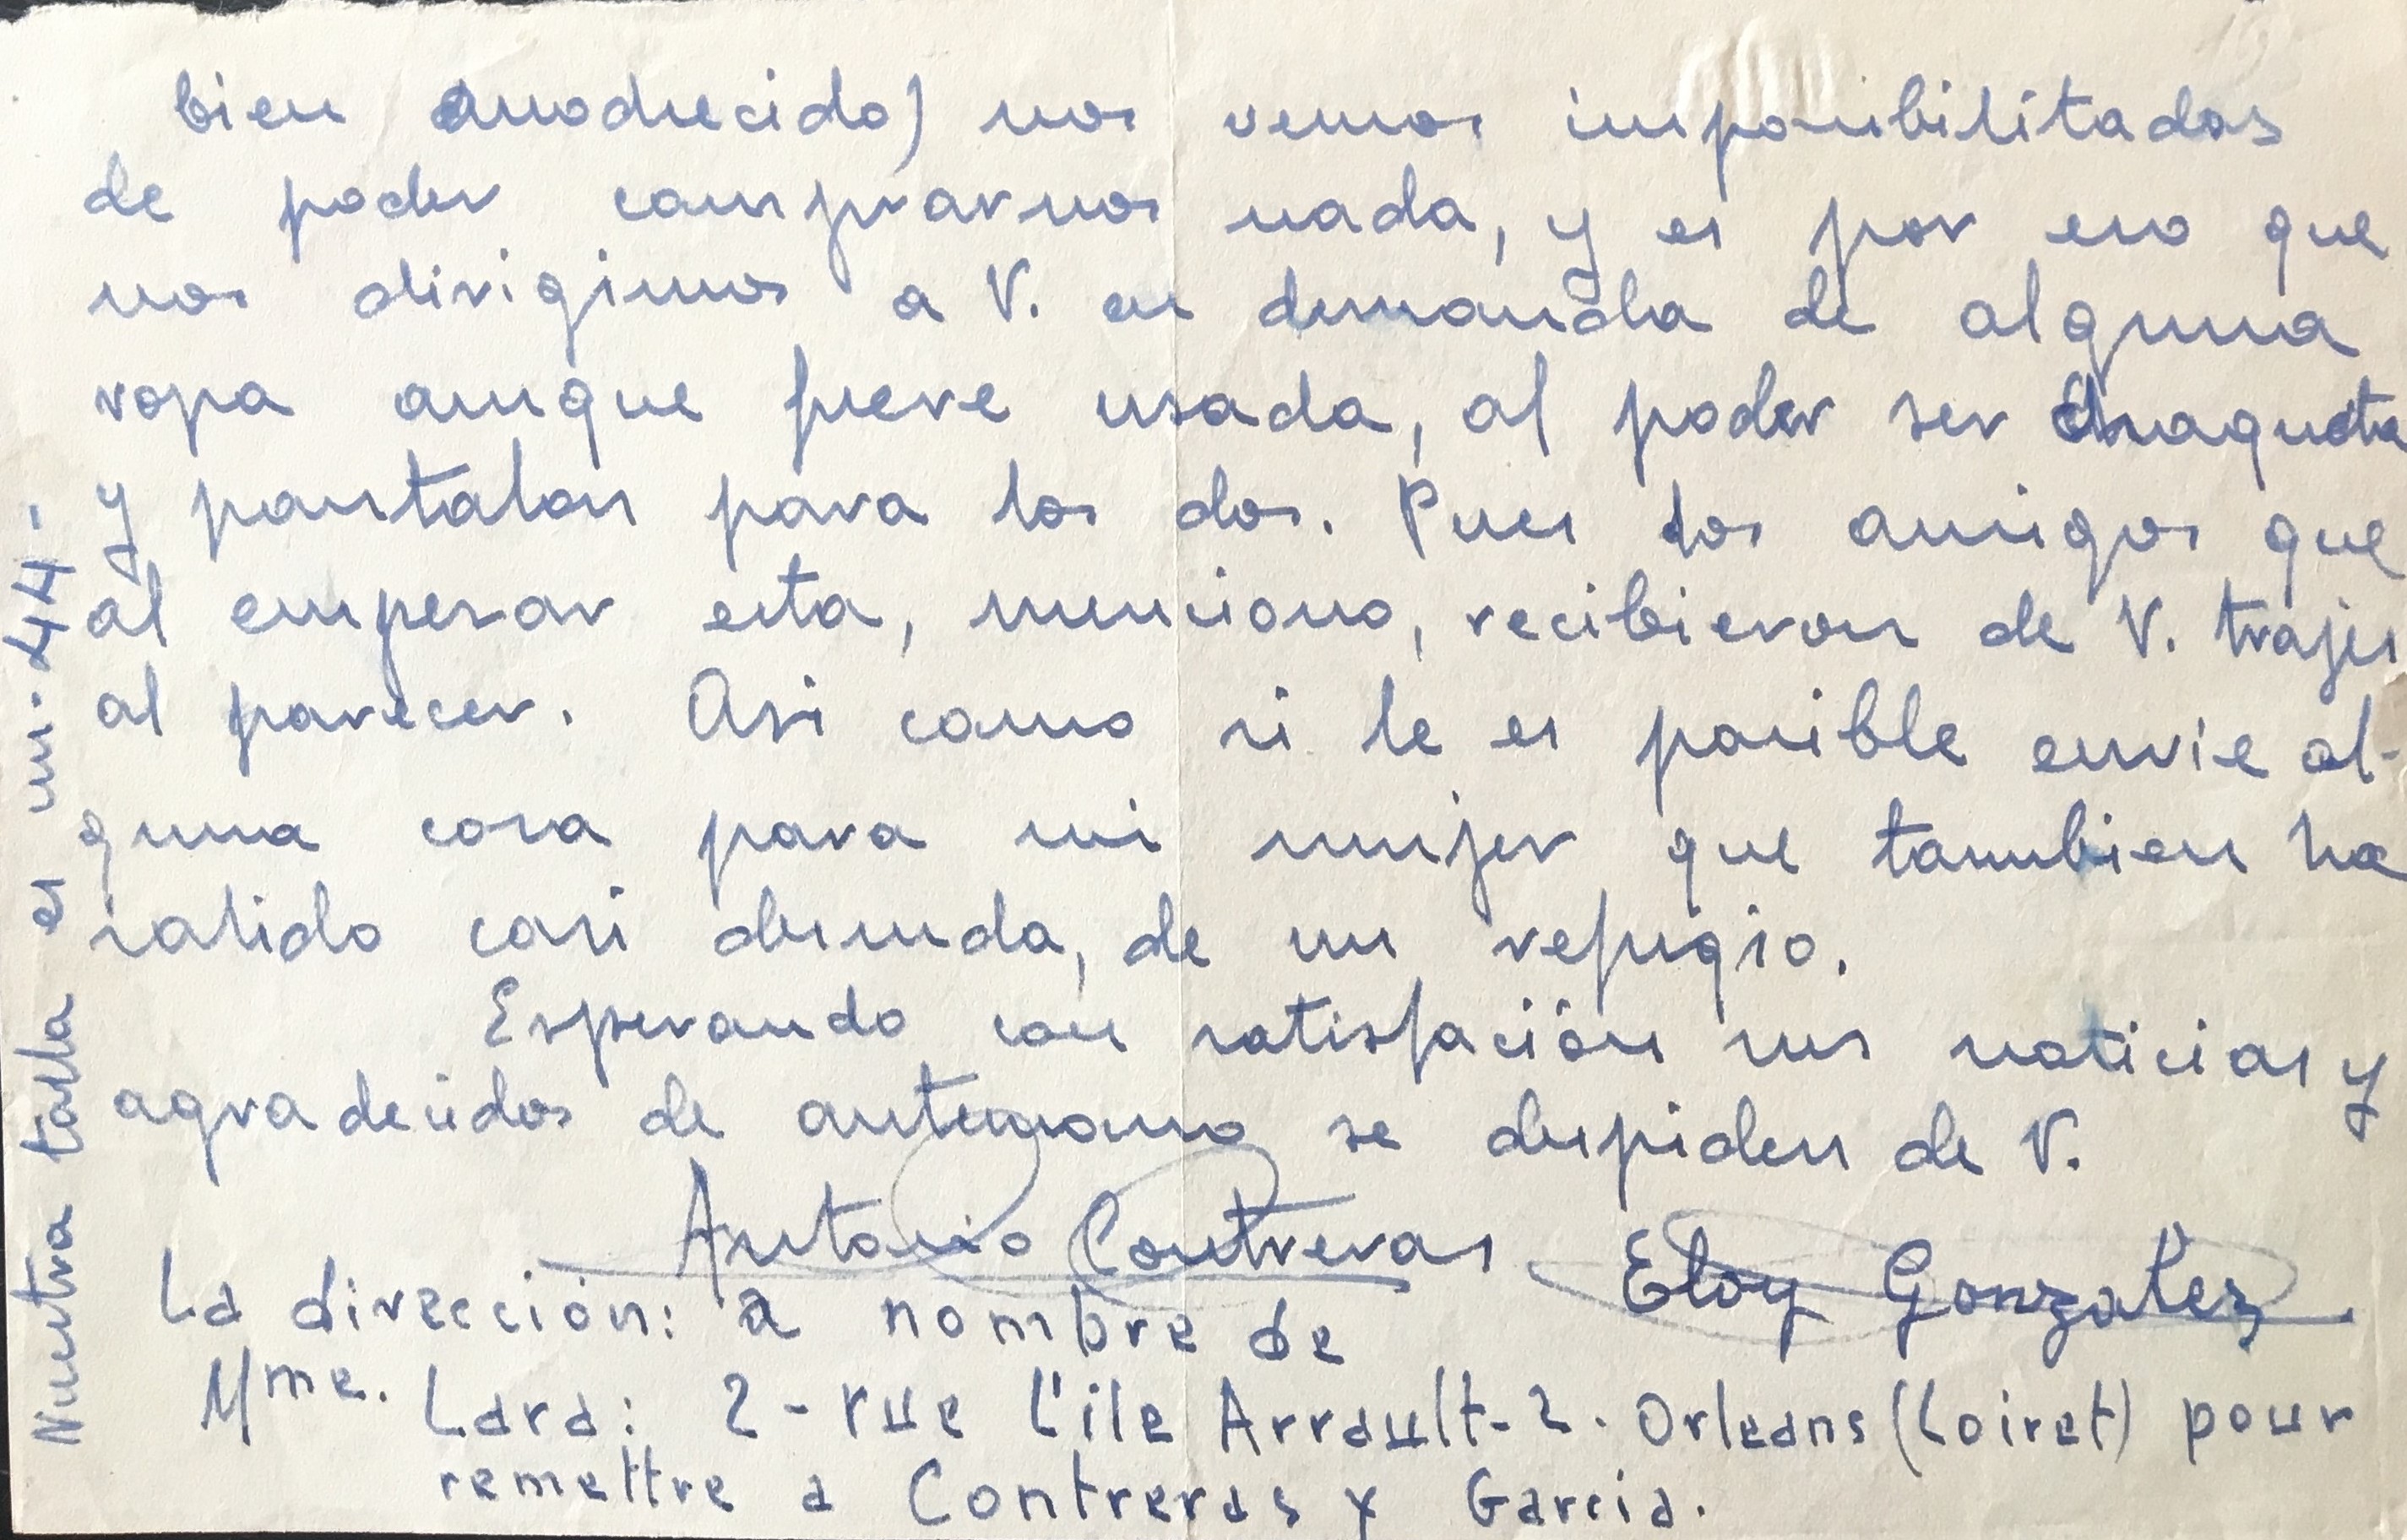 bien anodrecido) nos vemos imposibilitados
de poder comprarnos nada, y es por eso que
nos dirigimos a V. en demanda de alguna
ropa aunque fuere usada, al poder ser chaqueta
y pantalon para los dos. Pues los amigos que
al empesar esta, menciono, recibieron de V. trajes
al parecer. Asi como si le es posible envie al-
guna cosa para mi mujer que tambien ha
salido casi desnuda, de un refugio.
Esperando con satisfación sus noticias y
agradecidos de antemano se despiden de V.
Antonio Contreras Eloy Gonzalez
La dirección: a nombre de
Mme. Lara: 2-rue l'ile Arrault-2. Orleans (Loiret) pour
remettre a Contreras y Garcia.
Nuestra talla es un. 44-